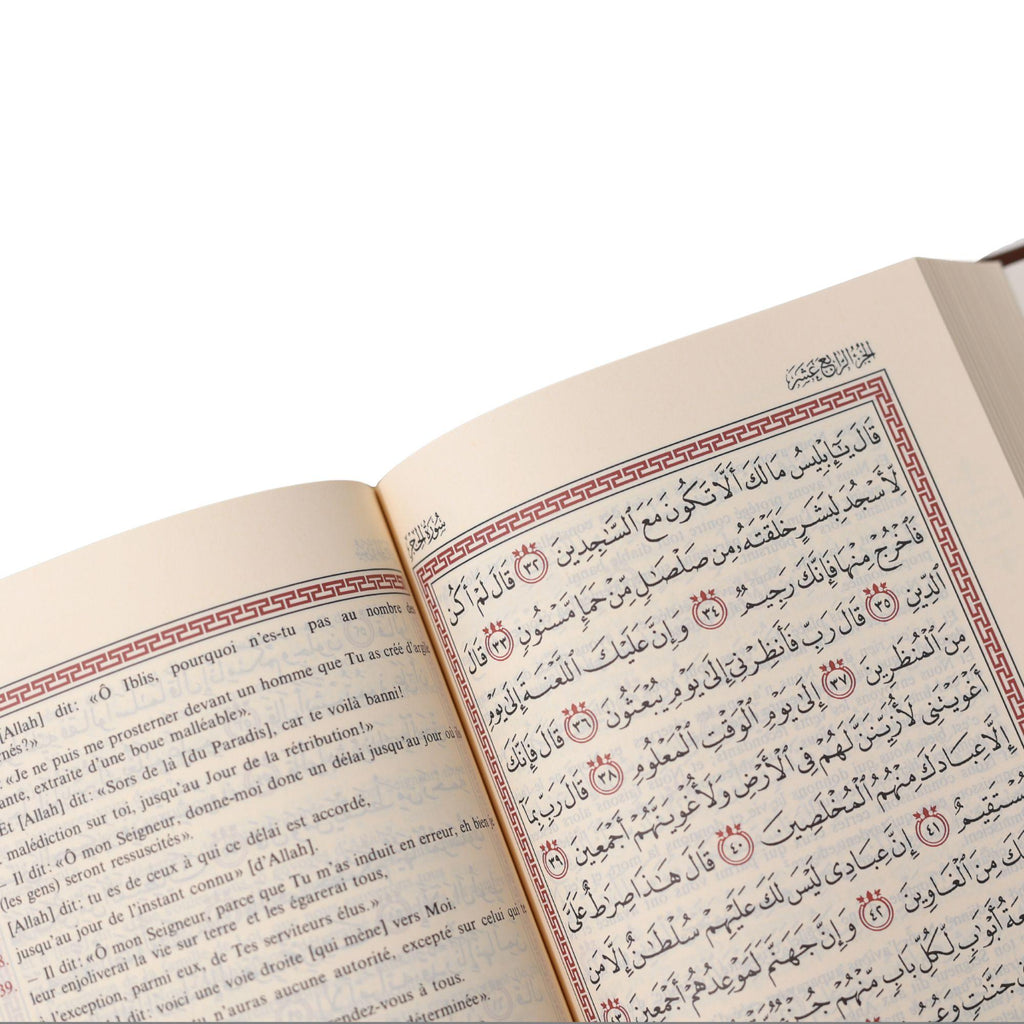 [Allah] dit: «Ô Iblis, pourquoi n'es-tu pas au nombre des
nés?»
«Je ne puis me prosterner devant un homme que Tu as créé d'argile
ante, extraite d'une boue malléable».
Et [Allah] dit: «Sors de là [du Paradis], car te voilà banni!
malédiction sur toi, jusqu'au Jour de la rétribution!»
– Il dit: «Ô mon Seigneur, donne-moi donc un délai jusqu'au jour où ils
(les gens) seront ressuscités».
[Allah] dit: tu es de ceux à qui ce délai est accordé,
jusqu'au jour de l'instant connu» [d'Allah].
– Il dit: «Ô mon Seigneur, parce que Tu m'as induit en erreur, eh bien je
leur enjoliverai la vie sur terre et les égarerai tous,
39. à l'exception, parmi eux, de Tes serviteurs élus.»
dit: voici une voie droite [qui mène] vers Moi.
tu n'auras aucune autorité, excepté sur celui qui te
rendez-vous à tous.
déterminée».
سُورَةُ الحِجْر
الجُزْءُ الرَّابِعَ عَشَرَ
قَالَ يَٰٓإِبْلِيسُ مَا لَكَ أَلَّا تَكُونَ مَعَ ٱلسَّٰجِدِينَ ٣٢ قَالَ لَمْ أَكُن
لِّأَسْجُدَ لِبَشَرٍ خَلَقْتَهُۥ مِن صَلْصَٰلٍ مِّنْ حَمَإٍ مَّسْنُونٍ ٣٣ قَالَ
فَٱخْرُجْ مِنْهَا فَإِنَّكَ رَجِيمٌ ٣٤ وَإِنَّ عَلَيْكَ ٱللَّعْنَةَ إِلَىٰ يَوْمِ
ٱلدِّينِ ٣٥ قَالَ رَبِّ فَأَنظِرْنِىٓ إِلَىٰ يَوْمِ يُبْعَثُونَ ٣٦ قَالَ فَإِنَّكَ
مِنَ ٱلْمُنظَرِينَ ٣٧ إِلَىٰ يَوْمِ ٱلْوَقْتِ ٱلْمَعْلُومِ ٣٨ قَالَ رَبِّ بِمَآ
أَغْوَيْتَنِى لَأُزَيِّنَنَّ لَهُمْ فِى ٱلْأَرْضِ وَلَأُغْوِيَنَّهُمْ أَجْمَعِينَ ٣٩
إِلَّا عِبَادَكَ مِنْهُمُ ٱلْمُخْلَصِينَ ٤٠ قَالَ هَٰذَا صِرَٰطٌ عَلَىَّ
مُسْتَقِيمٌ ٤١ إِنَّ عِبَادِى لَيْسَ لَكَ عَلَيْهِمْ سُلْطَٰنٌ إِلَّا مَنِ
كَ مِنَ ٱلْغَاوِينَ ٤٢ وَإِنَّ جَهَنَّمَ لَمَوْعِدُهُمْ أَجْمَعِينَ ٤٣
عَةُ أَبْوَٰبٍ لِّكُلِّ بَابٍ مِّنْهُمْ
جَنَّٰتٍ وَعُيُونٍ